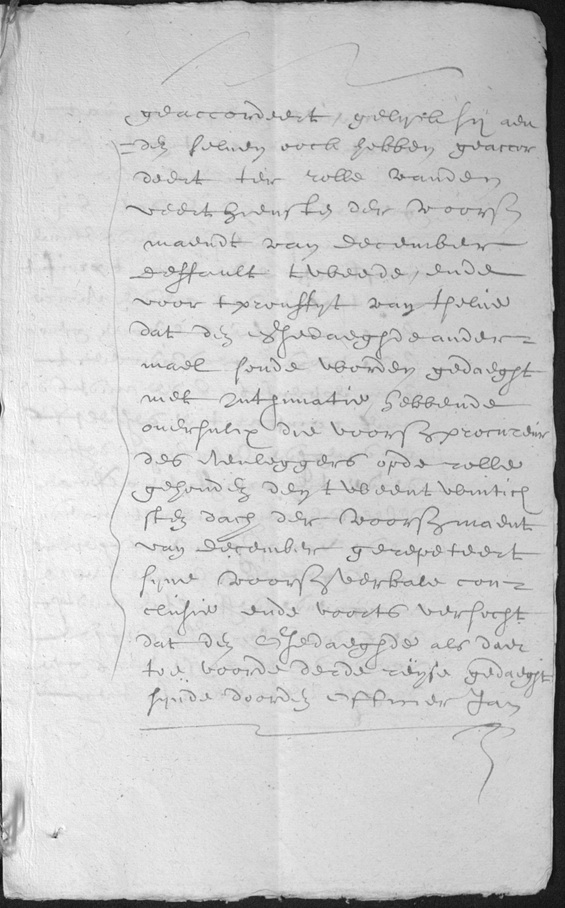 geaccordeert, gelijck sij aen
den seluen oock hebben geaccor
deert ter rolle vanden
veerthiensten der voorsz
maendt van december
deffault tweede, ende
voor tprouffyt van thelue
dat den Ghedaeghde ander-
mael soude worden gedaeght
met Inthimatie hebbende
ouersulcx die voorsz procureur
des Aenleggers opde rolle
gehouden den tweentwintich
sten dach der voorsz maent
van december gerepeteert
sijne voorsz verbale con-
clusie ende voorts versocht
dat den Ghedaeghde als daer
toe voorde derde reyse gedaeght
sijnde doorden Officier Jan